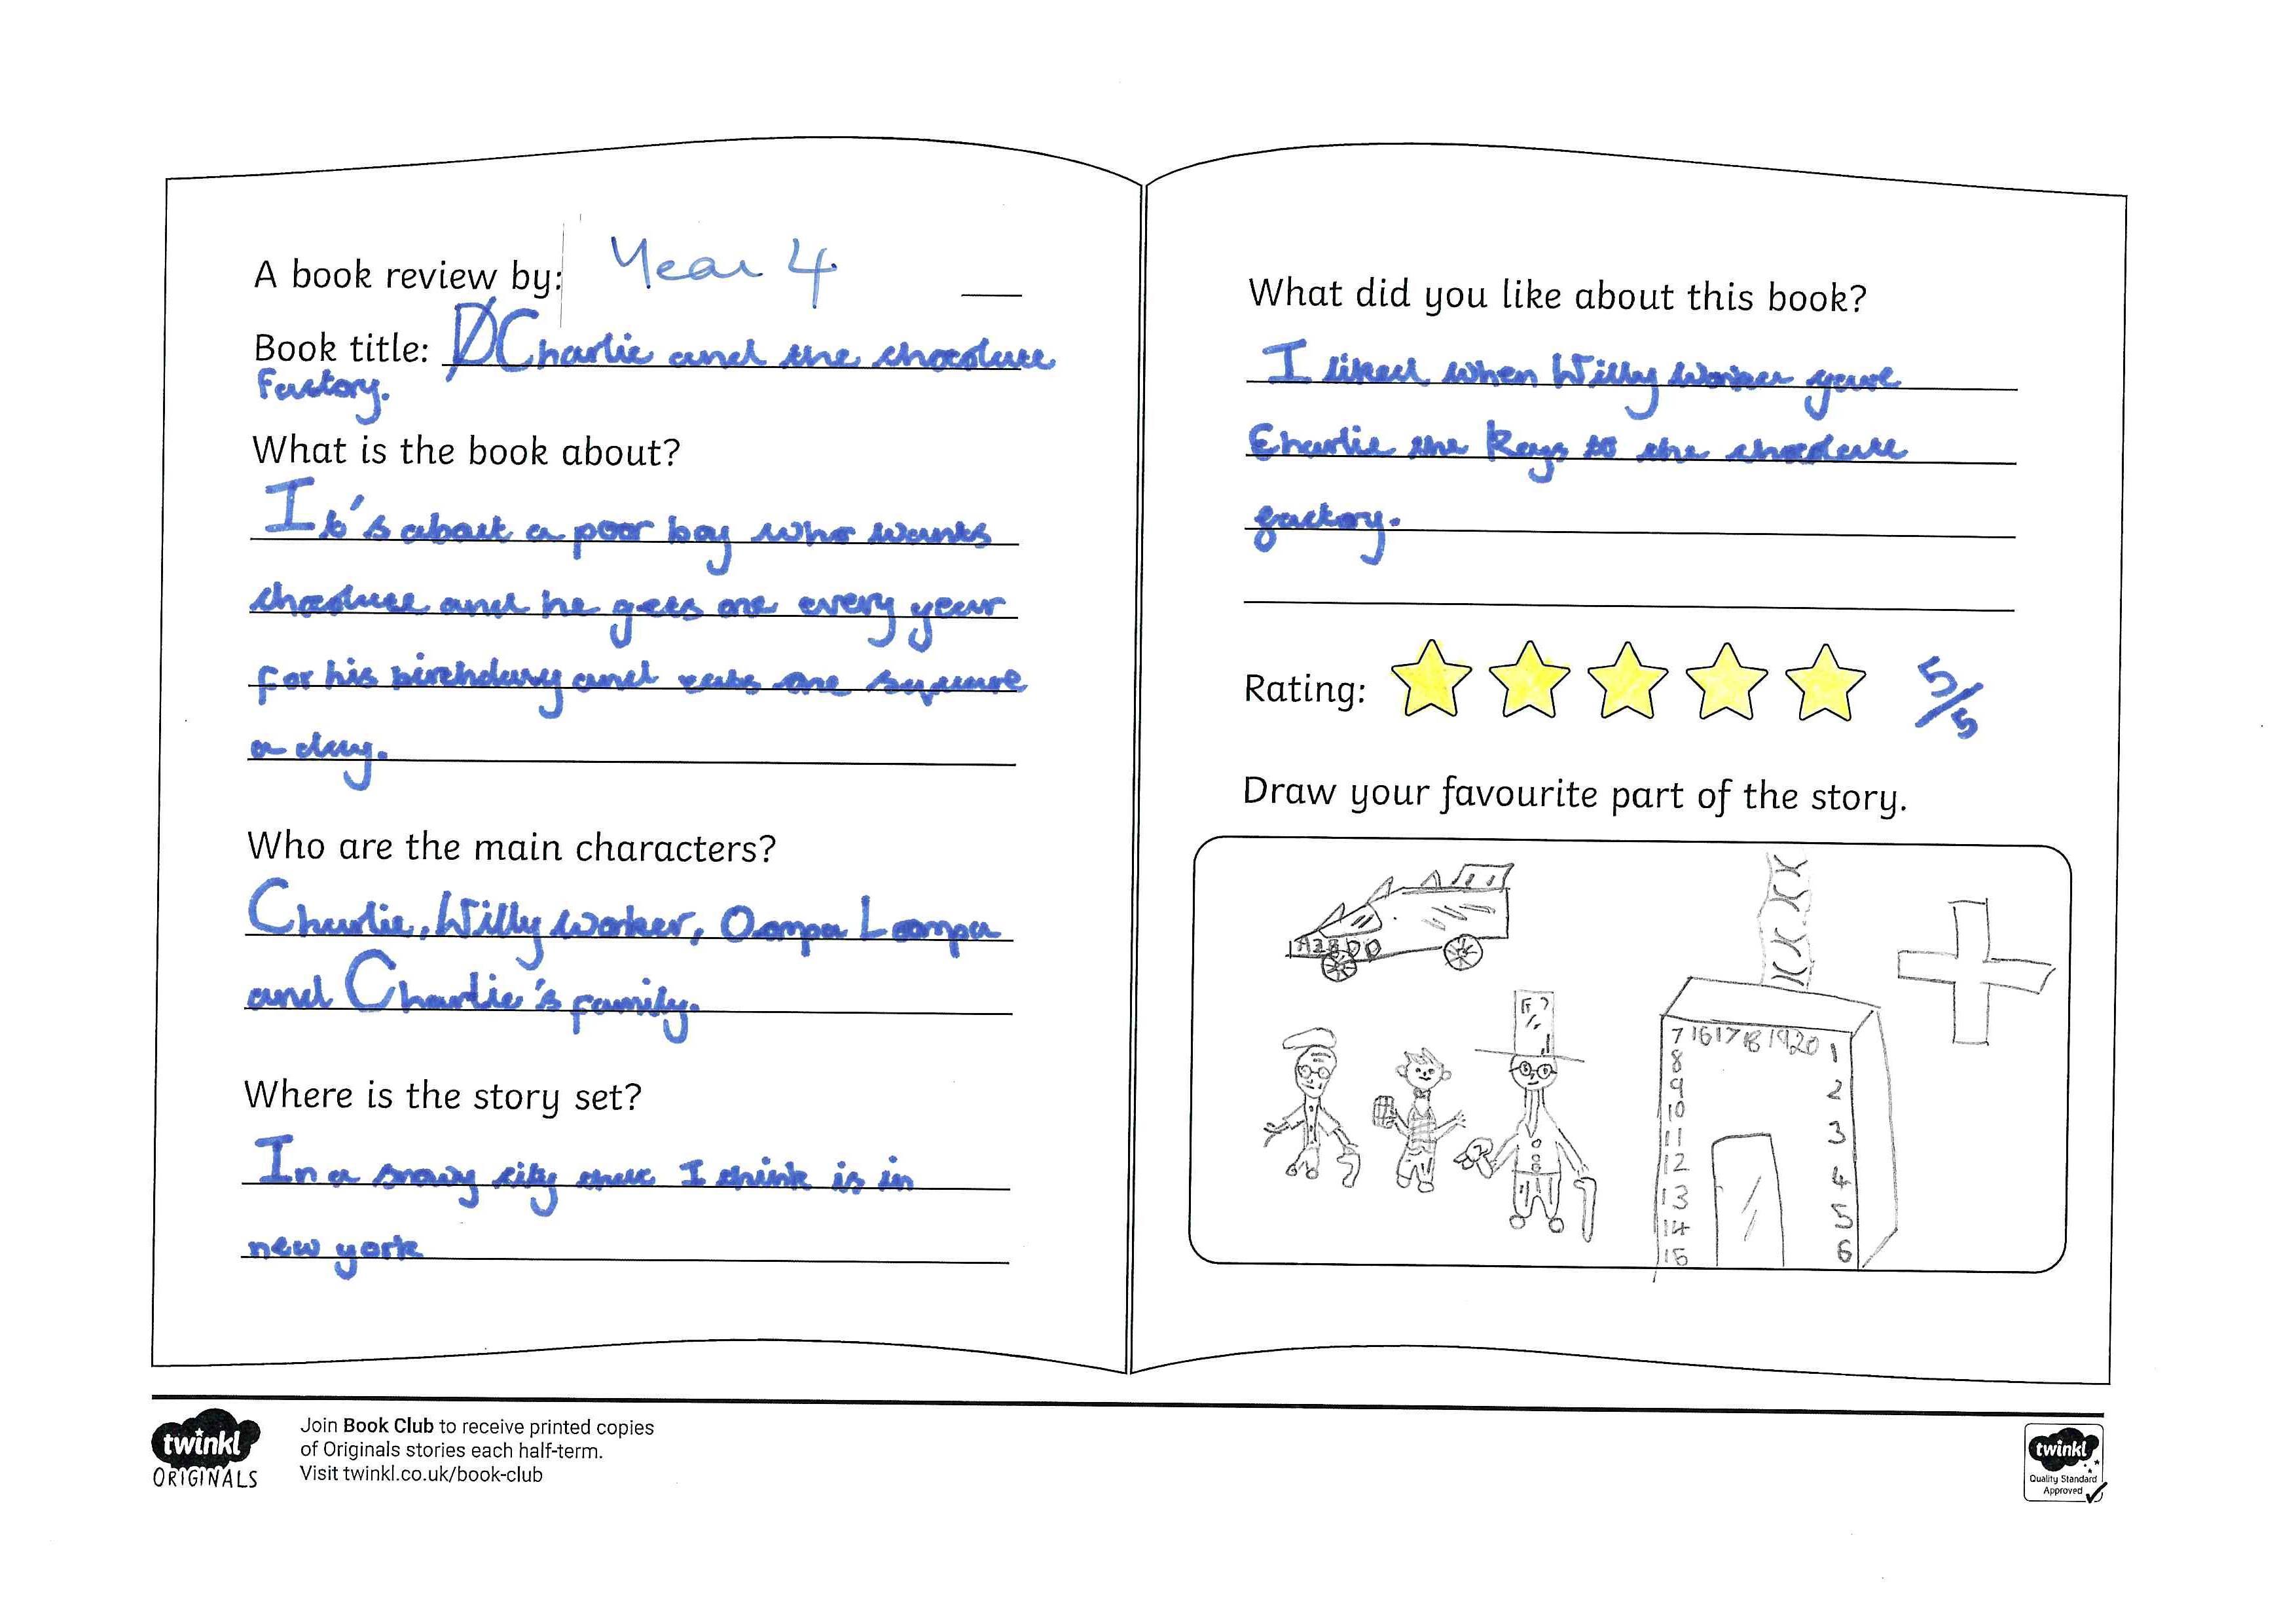 A book review by: Year 4
Book title: Charlie and the chocolate
Factory.
What is the book about?
It's about a poor boy who wants
chocolate and he gets one every year
for his birthday and eats one square
a day.
Who are the main characters?
Charlie, Willy Wonker, Oompa Loompa
and Charlie's family.
Where is the story set?
In a snowy city that I think is in
new york
What did you like about this book?
I liked when Willy Wonker gave
Charlie the Keys to the chocolate
factory.
Rating: 5/5
Draw your favourite part of the story.
7 16 17 18 19 20 1
8
9 2
10
11 3
12
13 4
14 5
15 6
twinkl
ORIGINALS
Join Book Club to receive printed copies
of Originals stories each half-term.
Visit twinkl.co.uk/book-club
twinkl
Quality Standard
Approved